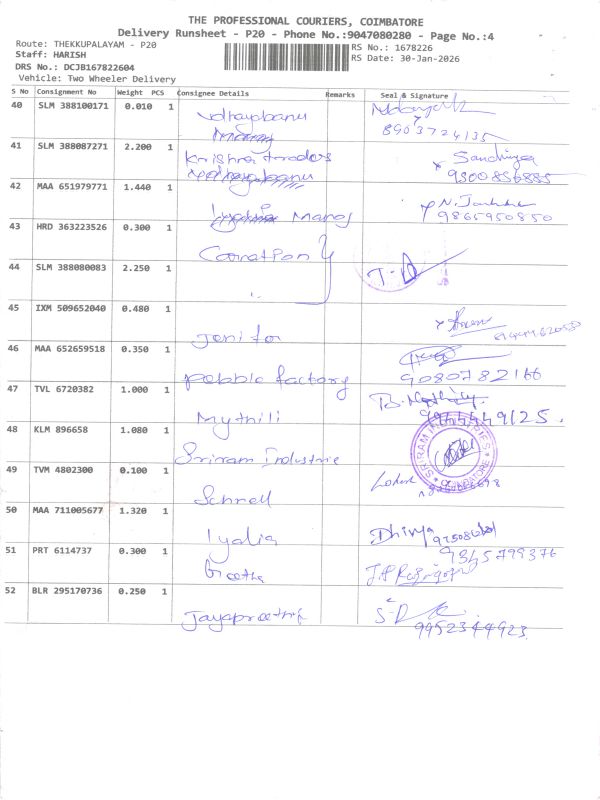 THE PROFESSIONAL COURIERS, COIMBATORE
Delivery Runsheet - P20 - Phone No.:9047080280 - Page No.:4
Route: THEKKUPALAYAM - P20
Staff: HARISH
DRS No.: DCJB167822604
Vehicle: Two Wheeler Delivery
RS No.: 1678226
RS Date: 30-Jan-2026
S No Consignment No Weight PCS Consignee Details Remarks Seal & Signature
40 SLM 388100171 0.010 1
8903724135
41 SLM 388087271 2.200 1 Krishna traders Sandhiya
9300856885
42 MAA 651979771 1.440 1 Manoj
9865950850
43 HRD 363223526 0.300 1
44 SLM 388080083 2.250 1
45 IXM 509652040 0.480 1 Jenifor
46 MAA 652659518 0.350 1 pebble factory
9080782166
47 TVL 6720382 1.000 1 Mythili
48 KLM 896658 1.080 1 Sriram Industrie SRIRAM INDUSTRIES COIMBATORE
49 TVM 4802300 0.100 1 Schnell
50 MAA 711005677 1.320 1 Iyalia Dhivya
51 PRT 6114737 0.300 1 Geetha 9345799376
52 BLR 295170736 0.250 1 Jayapreethi
9952344923